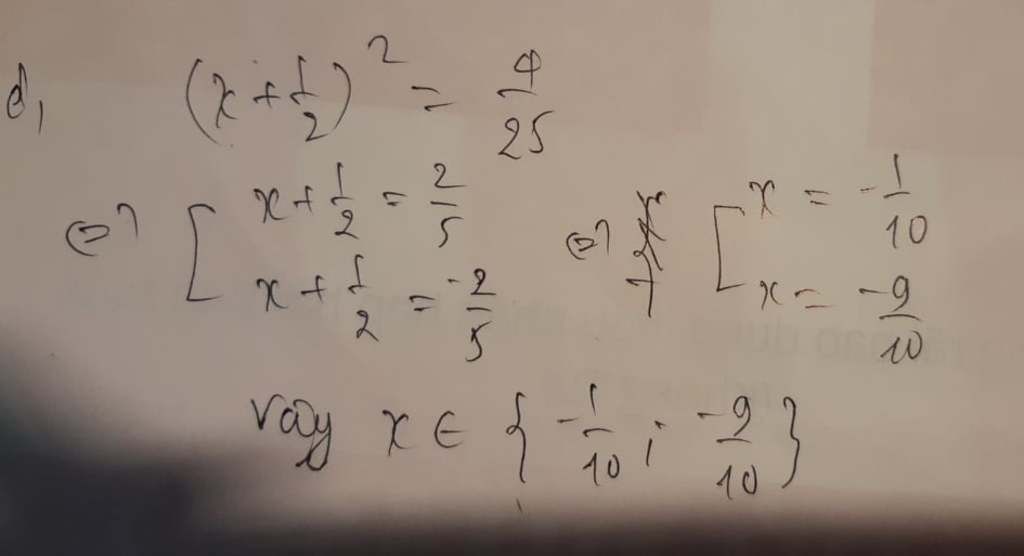 d, (x + 1/2)² = 4/25
⇔ [ x + 1/2 = 2/5 ⇔ [ x = -1/10
x + 1/2 = -2/5 x = -9/10
Vậy x ∈ { -1/10 ; -9/10 }